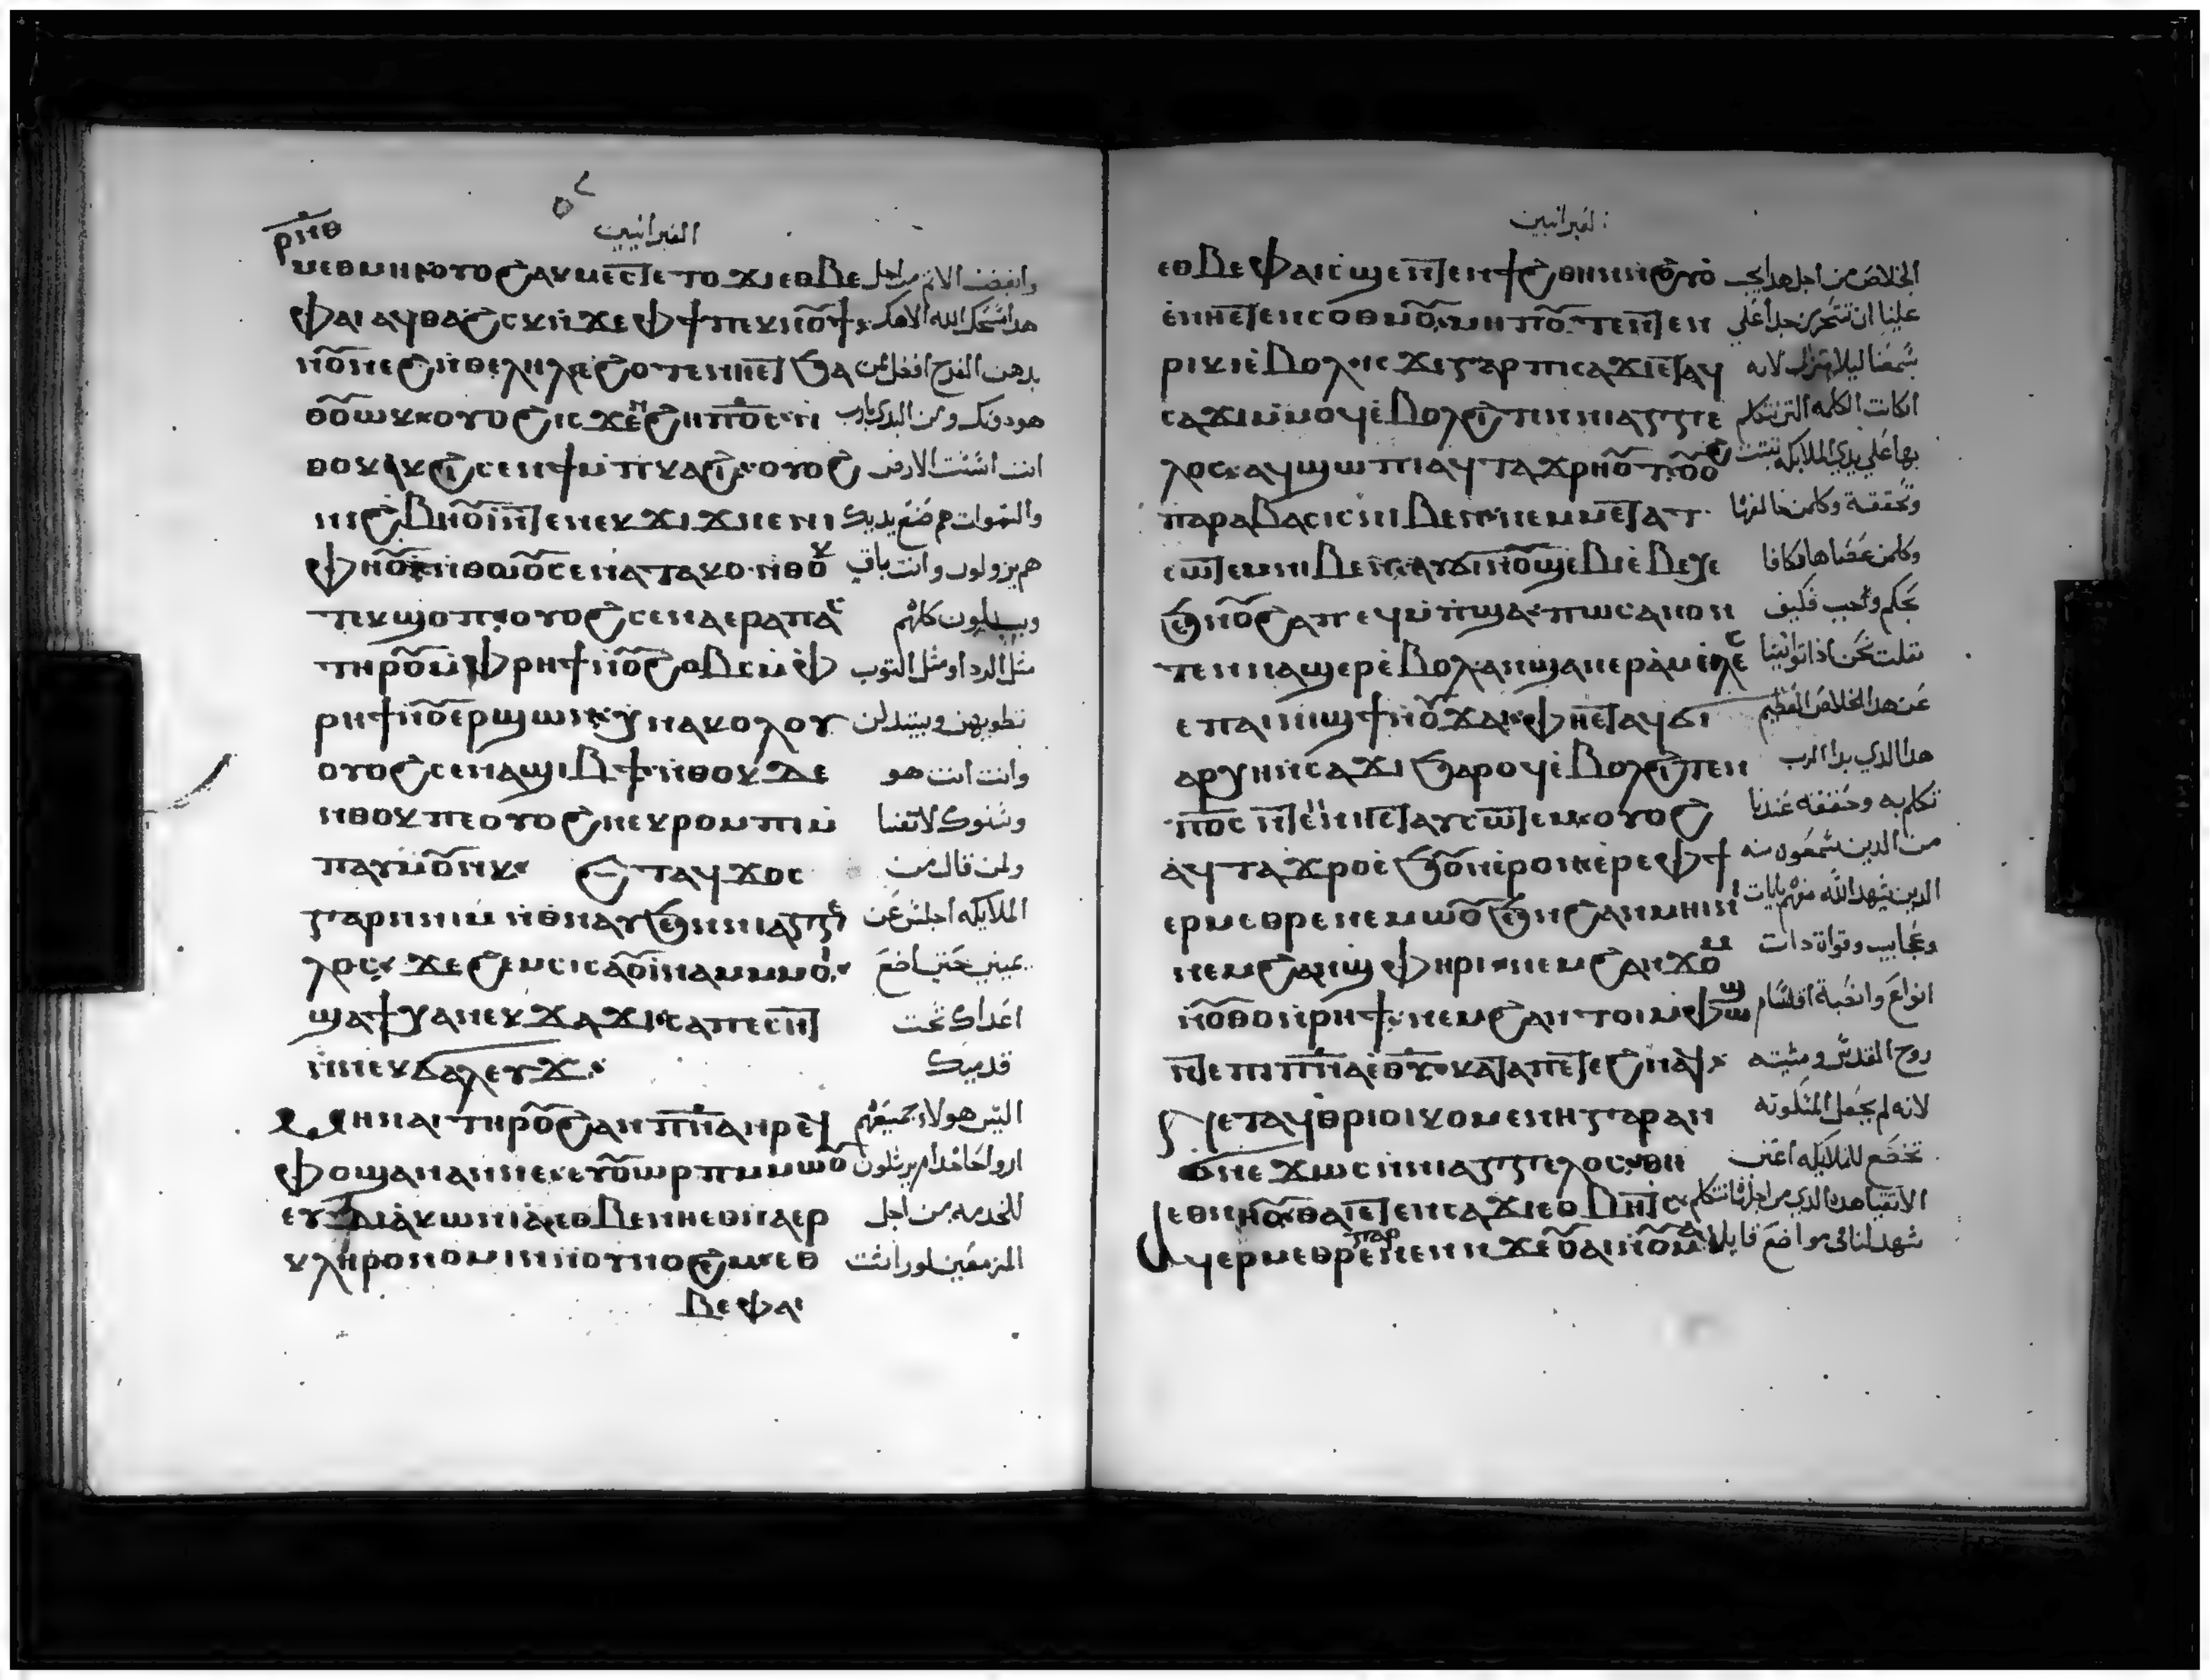 ⲣⲛⲑ
العبرانيين
ⲙⲉⲑⲙⲏⲓ ⲟⲩⲟϩ ⲁⲕⲙⲉⲥⲧⲉ ⲧⲟϫⲓ ⲉⲑⲃⲉ وابغضت الاتم من اجل
ⲫⲁⲓ ⲁϥⲑⲁϩⲥⲕ ⲛϫⲉ ⲫϯ ⲡⲉⲕⲛⲟⲩϯ هدا مسحك الله الاهك
ⲛⲟⲩⲛⲉϩ ⲛⲑⲉⲗⲏⲗ ⲉϩⲟⲧⲉ ⲛⲏⲉⲧϧⲁ بدهن الفرح افضل من
ⲑⲟⲩⲱⲕ ⲟⲩⲟϩ ⲓⲥϫⲉⲛϩⲏ ⲡⲟⲥ ⲛ هودونك ومن البدي يارب
ⲑⲟⲕ ⲁⲕϩⲓⲥⲉⲛϯ ⲙⲡⲕⲁϩⲓ ⲟⲩⲟϩ انت اسست الارض
ⲛⲓϩⲃⲏⲟⲩⲓ ⲛⲧⲉ ⲛⲉⲕϫⲓϫ ⲛⲉ ⲛⲓ والسموات هم صنع يديك
ⲫⲏⲟⲩⲓ ⲛⲑⲱⲟⲩ ⲥⲉⲛⲁⲧⲁⲕⲟ ⲛⲑⲟⲕ هم يزولون وانت باقي
ⲧⲉⲕϣⲟⲡ ⲟⲩⲟϩ ⲥⲉⲛⲁⲉⲣⲁⲡⲁⲥ ويبليون كلهم
ⲧⲏⲣⲟⲩ ⲙⲫⲣⲏϯ ⲛⲟⲩϩⲃⲟⲥ ⲙⲫ مثل الردا ومثل التوب
ⲣⲏϯ ⲛⲟⲩⲉⲣϣⲱⲛ ⲭⲛⲁⲕⲟⲗⲟⲩ تطويهن ويتبدلن
ⲟⲩⲟϩ ⲥⲉⲛⲁϣⲓⲃϯ ⲛⲑⲟⲕ ⲇⲉ وانت انت هو
ⲛⲑⲟⲕ ⲡⲉ ⲟⲩⲟϩ ⲛⲉⲕⲣⲟⲙⲡⲓ ⲙ وسنوك لا تفنا
ⲡⲁⲩⲙⲟⲩⲛⲕ ⲉⲧⲁϥϫⲟⲥ ولمن قال من
ⲅⲁⲣ ⲛⲛⲓⲙ ⲛⲑⲛⲁⲩ ϧⲉⲛ ⲛⲓⲁⲅⲅⲉ الملايكه اجلس عن
ⲗⲟⲥ ϫⲉ ϩⲉⲙⲥⲓ ⲥⲁⲟⲩⲓⲛⲁⲙ ⲙⲙⲟⲓ يميني حتي اضع
ϣⲁϯⲭⲁ ⲛⲉⲕϫⲁϫⲓ ⲥⲁⲡⲉⲥⲏⲧ اعداك تحت
ⲛⲛⲉⲕϭⲁⲗⲁⲩϫ قدميك
ⲙⲏ ⲛⲁⲓ ⲧⲏⲣⲟⲩ ϩⲁⲛⲡⲛⲁ ⲁⲛ ⲣⲉϥ اليس هولاء جميعهم
ⲫⲟϣⲁⲛ ⲁⲛ ⲛⲉ ⲉⲩⲟⲩⲱⲣⲡ ⲙⲙⲱⲟⲩ ارواحا خدام يرسلون
ⲉⲩⲇⲓⲁⲕⲱⲛⲓⲁ ⲉⲑⲃⲉ ⲛⲏⲉⲑⲛⲁⲉⲣ للخدمه من اجل
ⲕⲗⲏⲣⲟⲛⲟⲙⲓⲛ ⲛⲟⲩⲛⲟϩⲉⲙ ⲉⲑ المزمعين لوراثت
ⲃⲉ ⲫⲁⲓ
العبرانيين
ⲉⲑⲃⲉ ⲫⲁⲓ ⲥϣⲉ ⲛⲧⲉⲛϯϩⲑⲏⲛ ⲛϩⲟⲩⲟ الخلاص من اجل هدا يجب
ⲉⲛⲏⲉⲧⲉⲛⲥⲟⲑⲙⲟⲩ ⲙⲏⲡⲟⲧⲉ ⲛⲧⲉⲛ علينا ان نتحرز جدا علي
ⲣⲓⲕⲓ ⲉⲃⲟⲗ ⲓⲥϫⲉ ⲅⲁⲣ ⲡⲓⲥⲁϫⲓ ⲉⲧⲁϥ سمعنا ليلا نزل لانه
ⲥⲁϫⲓ ⲙⲙⲟϥ ⲉⲃⲟⲗ ϩⲓⲧⲉⲛ ⲛⲓⲁⲅⲅⲉ انكانت الكلمه التي تتكلم
ⲗⲟⲥ ⲁϥϣⲱⲡⲓ ⲁϥⲧⲁϫⲣⲏⲟⲩⲧ ⲟⲩⲟϩ بها علي يدي الملايكه تبتت
ⲡⲁⲣⲁⲃⲁⲥⲓⲥ ⲛⲓⲃⲉⲛ ⲛⲉⲙ ⲙⲉⲧⲁⲧ وتحققت وكلمن خالفها
ⲥⲱⲧⲉⲙ ⲛⲓⲃⲉⲛ ⲁⲩϭⲓ ⲛⲟⲩϣⲉⲃⲓⲉ ⲃⲉⲭⲉ وكلمن عصاها مكافا
ϧⲉⲛ ⲟⲩϩⲁⲡ ⲉϥⲙⲡϣⲁ ⲡⲱⲥ ⲁⲛⲟⲛ بحكم واجب فكيف
ⲧⲉⲛⲛⲁϣⲉⲣⲉⲃⲟⲗ ⲁⲛϣⲁⲛⲉⲣⲁⲙⲉⲗⲉⲥ نفلت نحن اذا توانينا
ⲉⲡⲁⲓⲛⲓϣϯ ⲛⲟⲩϫⲁⲓ ⲫⲏⲉⲧⲁϥϭⲓ عن هدا الخلاص العظيم
ⲁⲣⲭⲏ ⲛⲥⲁϫⲓ ϧⲁⲣⲟϥ ⲉⲃⲟⲗ ϩⲓⲧⲉⲛ هدا الدي بدا الرب
ⲡⲟⲥ ⲛⲧⲉⲛ ⲛⲏⲉⲧⲁⲩⲥⲱⲧⲉⲙ ⲟⲩⲟϩ تكلم به وحققته عندنا
ⲁϥⲧⲁϫⲣⲟ ⲉϧⲟⲩⲛ ⲉⲣⲟⲛ ⲉⲣⲉ ⲫϯ من الدين سمعوه منه
ⲉⲣⲙⲉⲑⲣⲉ ⲛⲉⲙⲱⲟⲩ ϧⲉⲛ ϩⲁⲛⲙⲏⲓⲛⲓ الدين شهد الله معهم بايات
ⲛⲉⲙ ϩⲁⲛϣⲫⲏⲣⲓ ⲛⲉⲙ ϩⲁⲛϫⲟⲙ وعجايب وقواة دات
ⲛⲟⲩⲑⲟ ⲛⲣⲏϯ ⲛⲉⲙ ϩⲁⲛⲧⲟⲓ ⲙⲫⲱϣ انواع وانصبة اقسام
ⲛⲧⲉ ⲡⲓⲡⲛⲁ ⲉⲑⲩ ⲕⲁⲧⲁ ⲡⲉⲧⲉϩⲛⲁϥ روح القدس ومشيته
ⲛⲉⲧⲁϥⲑⲣⲓ ϯⲟⲓⲕⲟⲩⲙⲉⲛⲏ ⲅⲁⲣ ⲁⲛ لانه لم يجعل المسكونه
ϭⲛⲉϫⲱⲥ ⲛⲛⲓⲁⲅⲅⲉⲗⲟⲥ ⲑⲏ تخضع للملايكه اعني
ⲉⲑⲛⲏⲟⲩ ⲑⲁⲓ ⲉⲧⲉⲛⲥⲁϫⲓ ⲉⲑⲃⲏⲧⲥ الاتيه هده الدي من اجلها نتكلم
ⲁϥⲉⲣⲙⲉⲑⲣⲉ ⲇⲉ ⲛϫⲉ ⲟⲩⲁⲓ ⲛⲟⲩⲙⲁ شهد لنا في مواضع قايلا